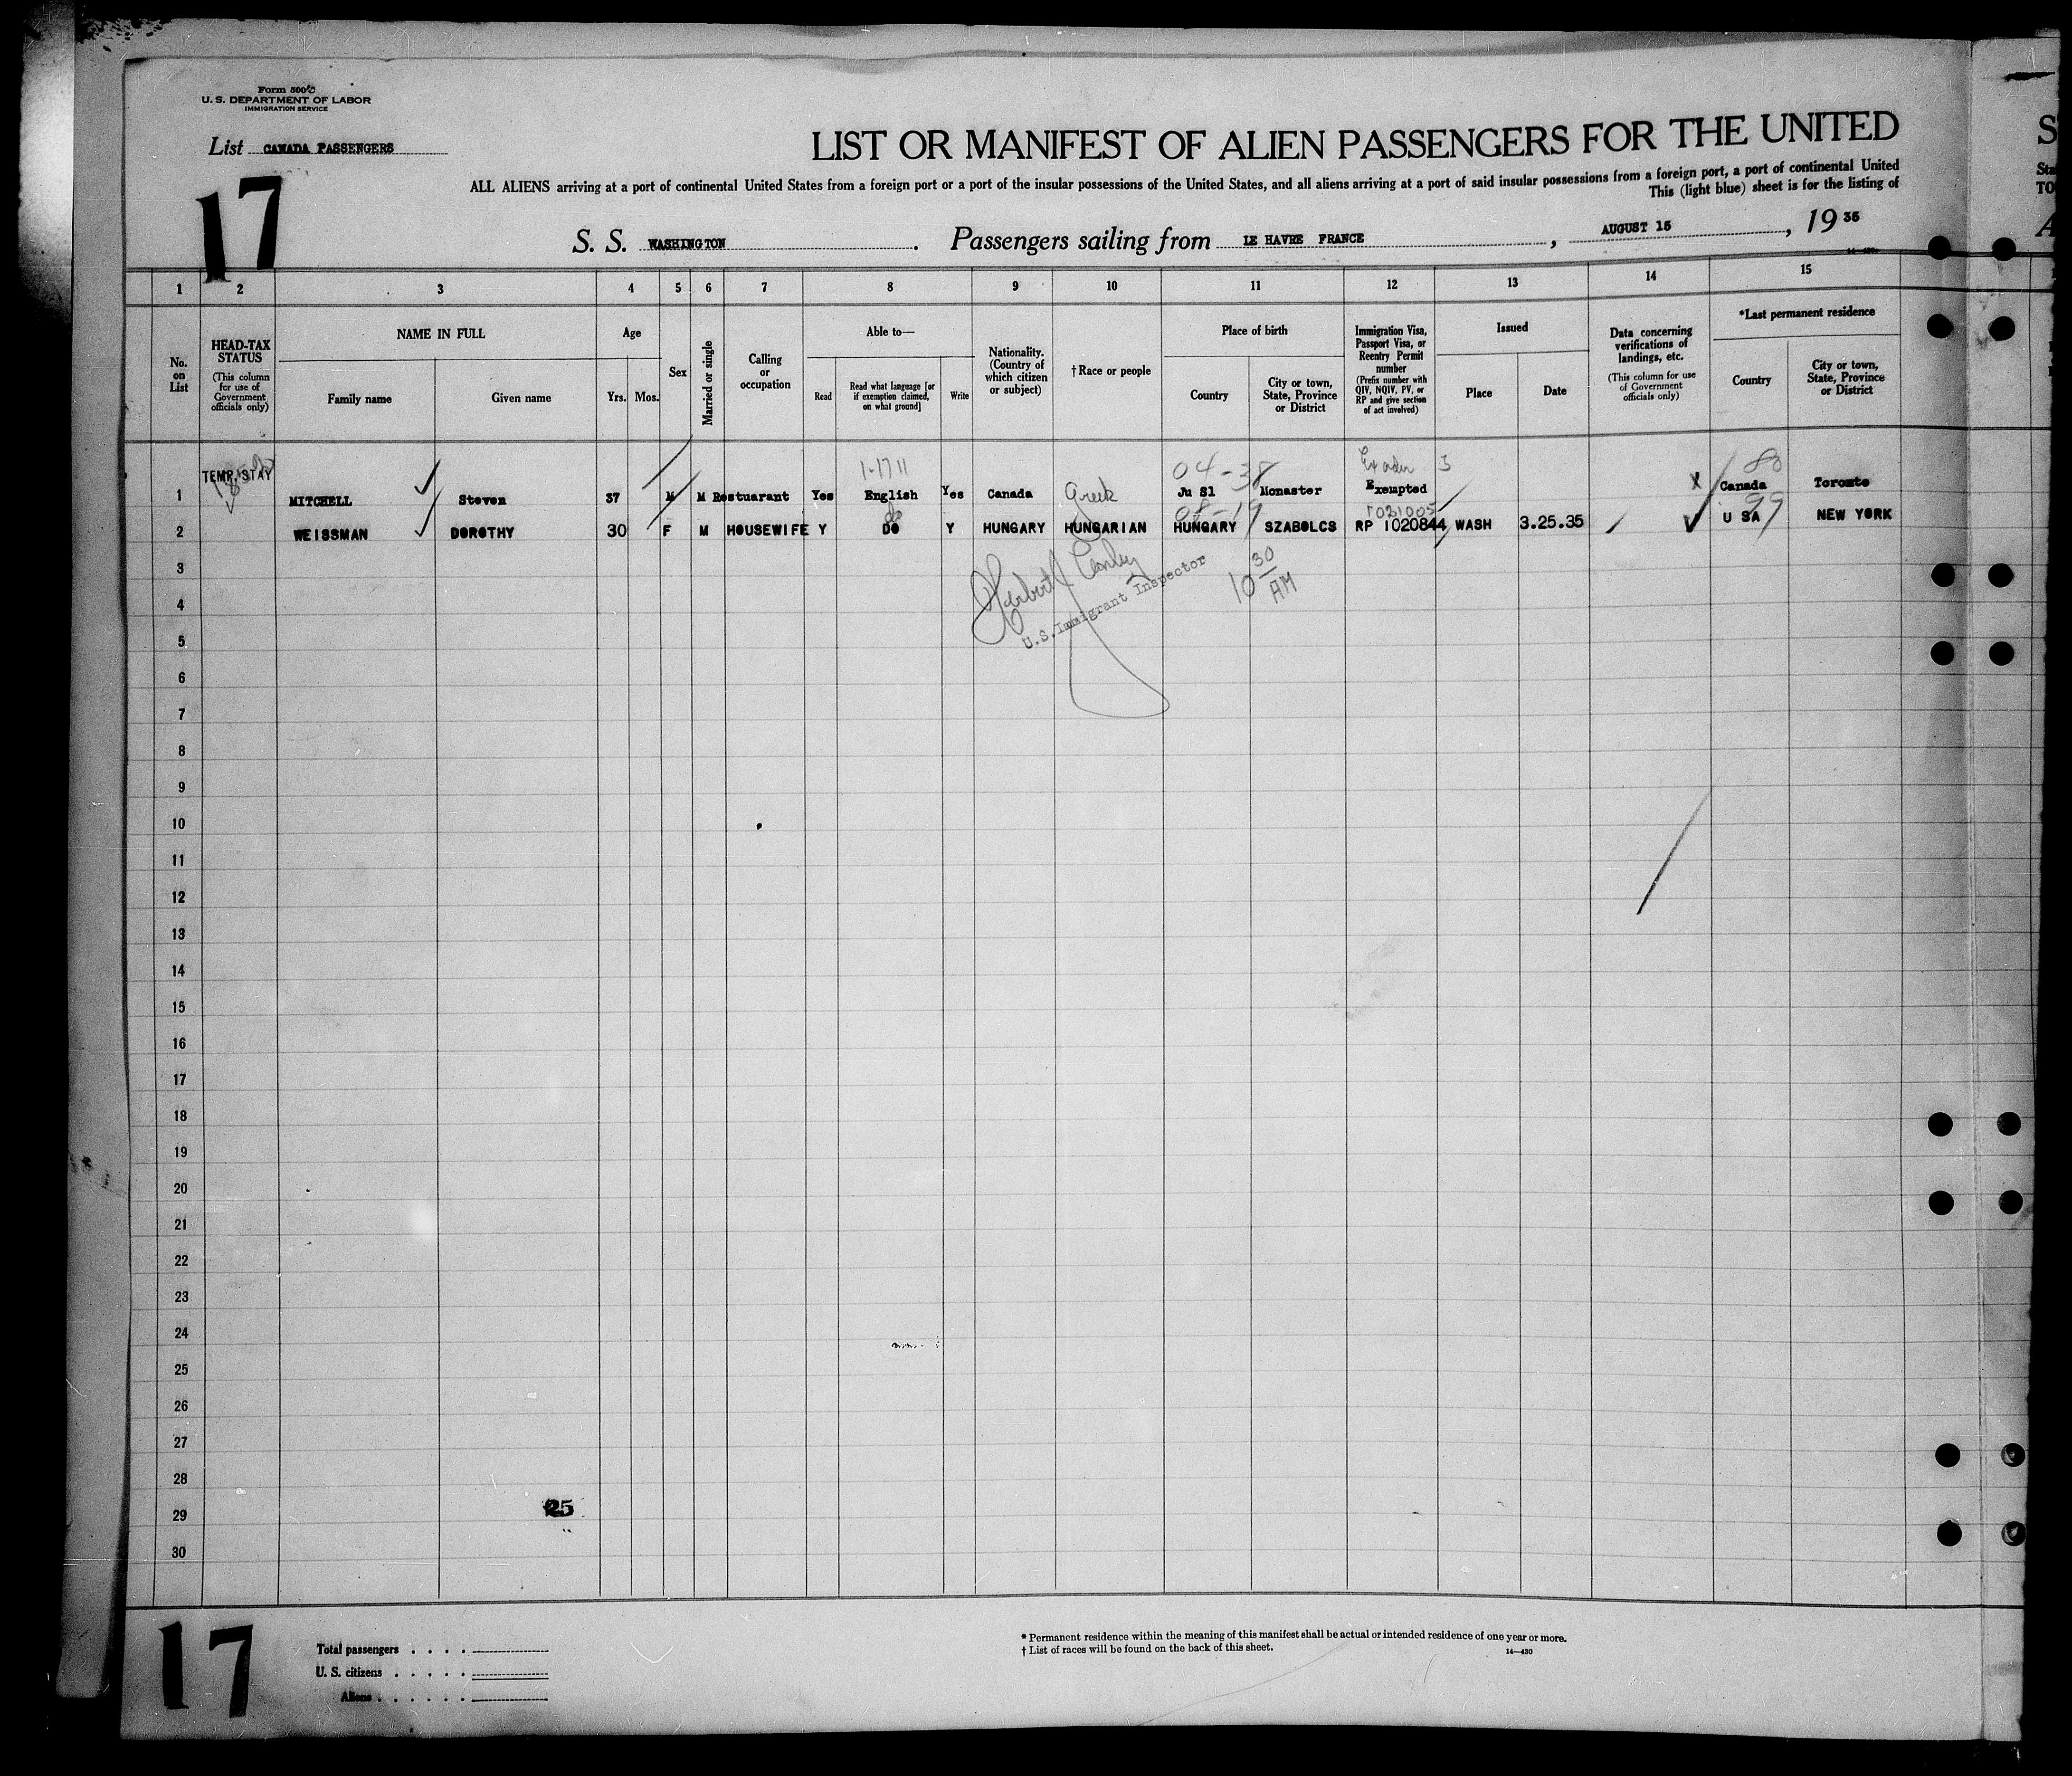 Form 500
U. S. DEPARTMENT OF LABOR
IMMIGRATION SERVICE
List CANADA PASSENGERS
17
LIST OR MANIFEST OF ALIEN PASSENGERS FOR THE UNITED
ALL ALIENS arriving at a port of continental United States from a foreign port or a port of the insular possessions of the United States, and all aliens arriving at a port of said insular possessions from a foreign port, a port of continental United
This (light blue) sheet is for the listing of
S. S. WASHINGTON . Passengers sailing from LE HAVRE FRANCE , AUGUST 15 , 19 35
1 2 3 4 5 6 7 8 9 10 11 12 13 14 15
No. on List
HEAD-TAX STATUS (This column for use of Government officials only)
NAME IN FULL
Family name
Given name
Age
Yrs. Mos.
Sex
Married or single
Calling or occupation
Able to—
Read
Read what language [or if exemption claimed, on what ground]
Write
Nationality. (Country of which citizen or subject)
† Race or people
Place of birth
Country
City or town, State, Province or District
Immigration Visa, Passport Visa, or Reentry Permit number (Prefix number with QIV, NQIV, PV, or RP and give section of act involved)
Issued
Place
Date
Data concerning verifications of landings, etc. (This column for use of Government officials only)
*Last permanent residence
Country
City or town, State, Province or District
TEMP. STAY 1-1711 04-38 3 80
1 MITCHELL Steven 37 M M Restuarant Yes English Yes Canada Greek Ju Sl Monaster Exempted X Canada Toronto
do 08-19 1021005 99
2 WEISSMAN DOROTHY 30 F M HOUSEWIFE Y DO Y HUNGARY HUNGARIAN HUNGARY SZABOLCS RP 1020844 WASH 3.25.35 U SA NEW YORK
3
Herbert J
U.S. Immigrant Inspector
10 30 AM
4
5
6
7
8
9
10
11
12
13
14
15
16
17
18
19
20
21
22
23
24
25
26
27
28
29 25
30
17
Total passengers
U. S. citizens
Aliens
* Permanent residence within the meaning of this manifest shall be actual or intended residence of one year or more.
† List of races will be found on the back of this sheet.
14—430